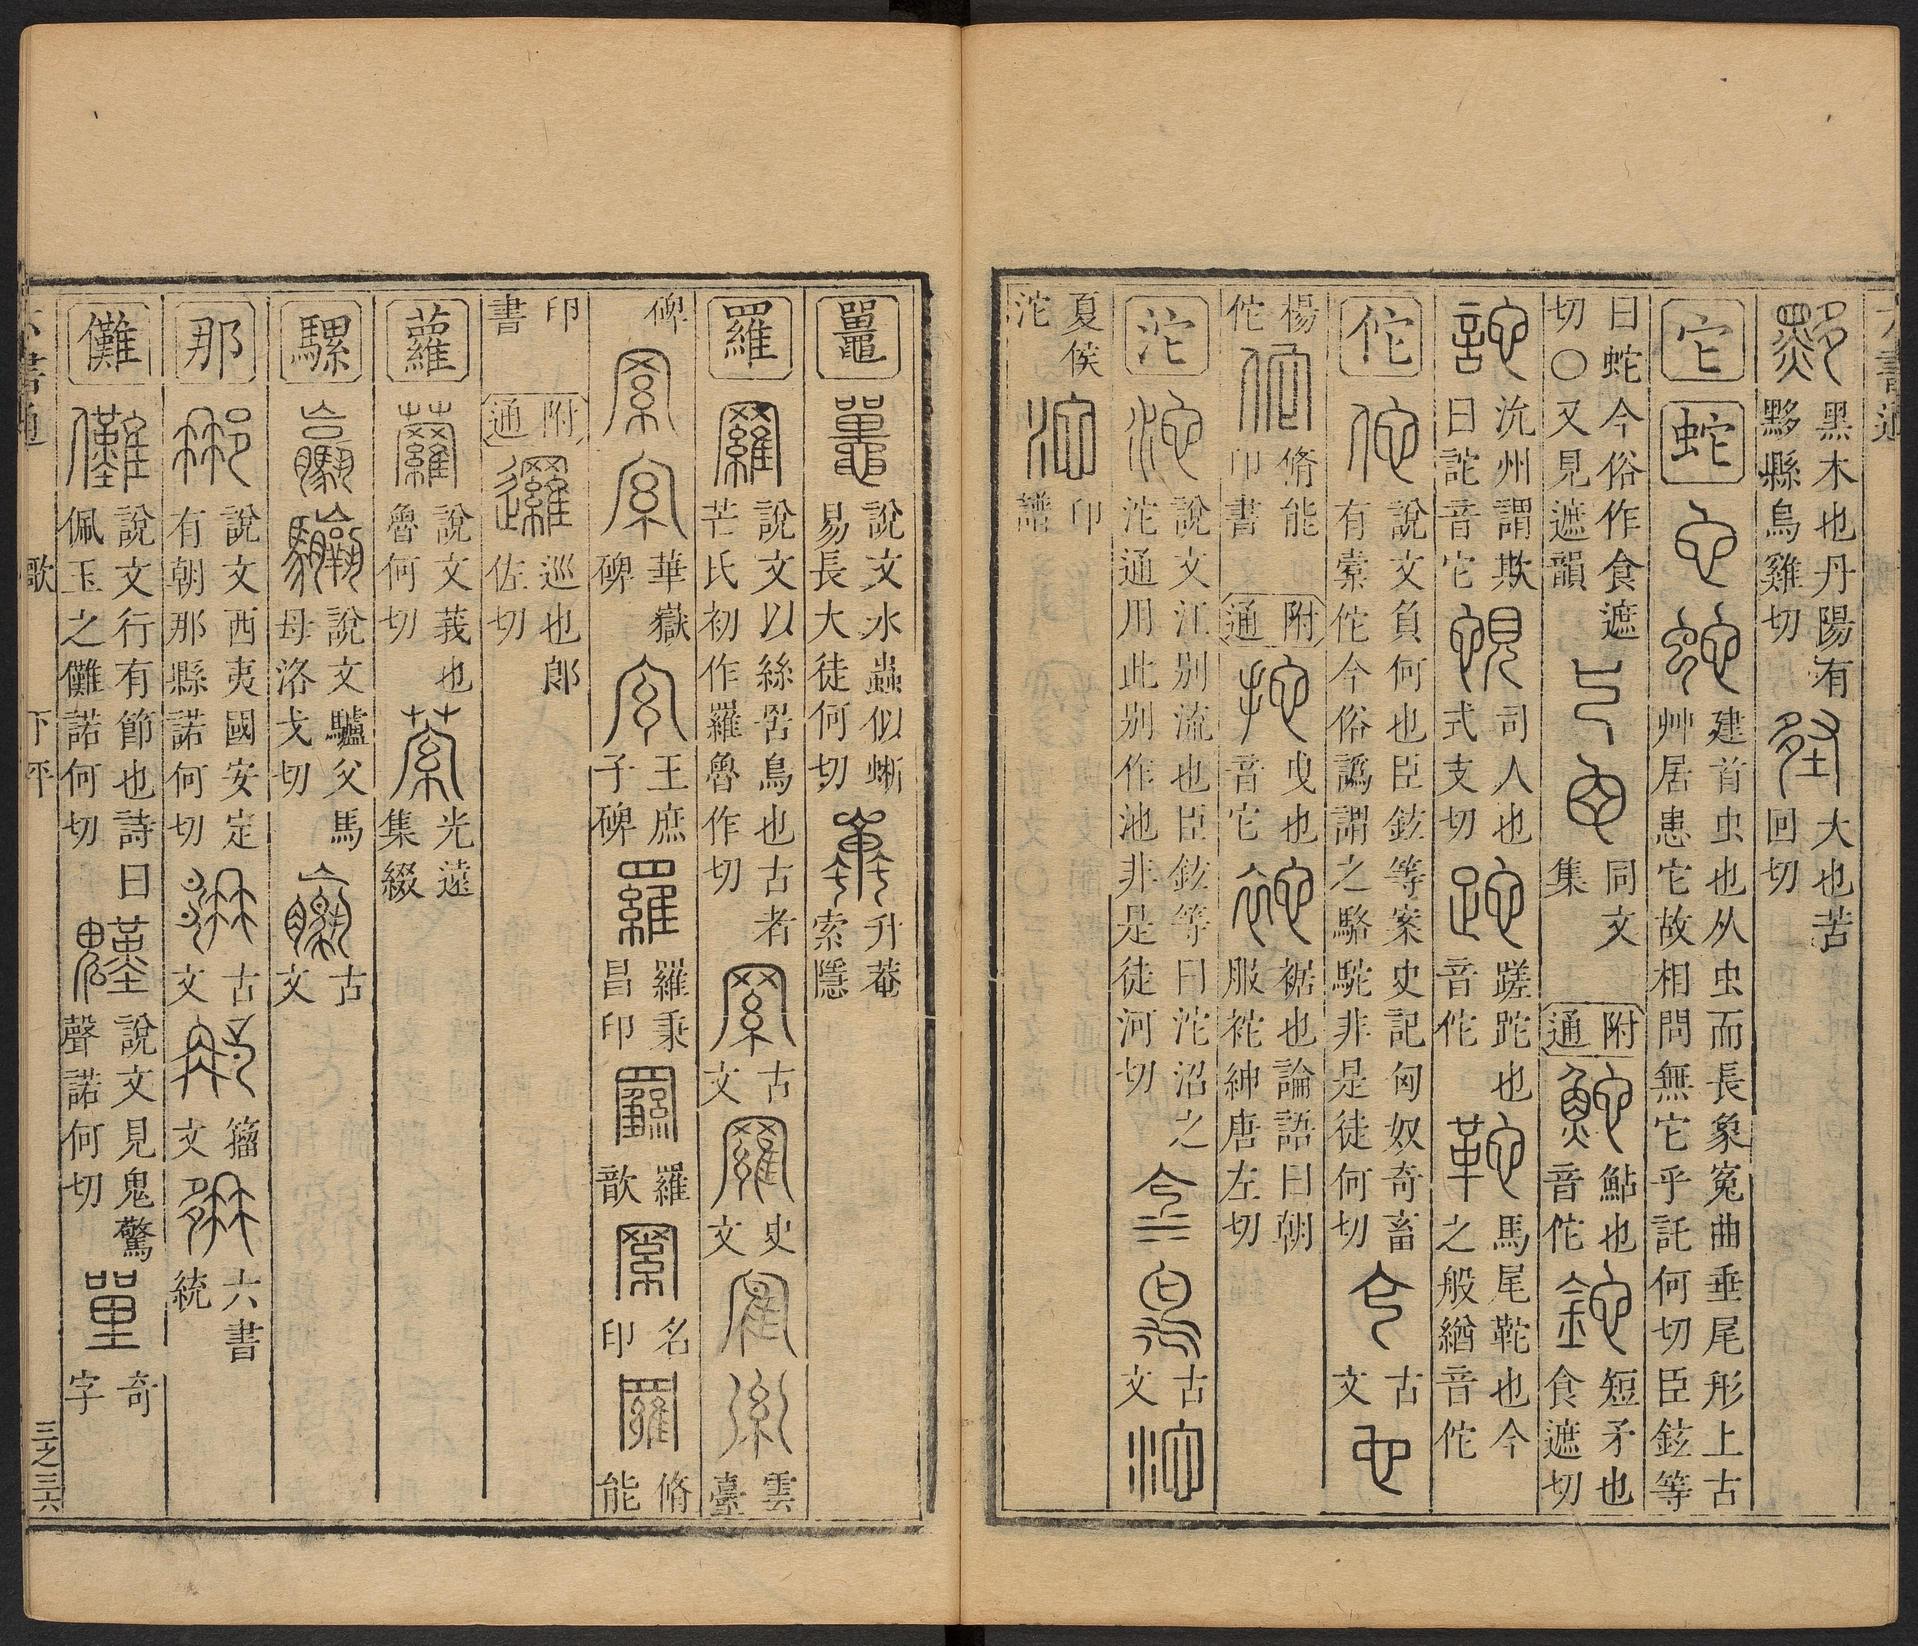 六書通
黟 黑木也丹陽有黟縣烏雞切 大也苦回切
它 蛇 它 蛇 建首虫也从虫而長象冤曲垂尾形上古艸居患它故相問無它乎託何切臣鉉等
曰蛇今俗作食遮切〇又見遮韻 同文集 附通 鮀 鮎也音佗 鉈 短矛也食遮切
詑 沇州謂欺曰詑音它 司人也式支切 跎 蹉跎也音佗 鞁 馬尾鞁也今之般緧音佗
佗 佗 說文負何也臣鉉等案史記匈奴奇畜有橐佗今俗譌謂之駱駝非是徒何切 古文
楊佗 脩能印書 附通 拕 曳也音它 袉 裾也論語曰朝服袉紳唐左切
沱 沱 說文江別流也臣鉉等曰沱沼之沱通用此別作池非是徒河切 古文
夏侯沱 印譜
鼉 鼉 說文水蟲似蜥易長大徒何切 升菴索隱
羅 羅 說文以絲罟鳥也古者芒氏初作羅魯作切 古文 史文 雲臺
碑 華嶽碑 王庶子碑 羅 羅秉昌印 羅歆 名印 羅 脩能
印書 附通 邏 巡也郎佐切
蘿 蘿 說文莪也魯何切 光遠集綴
騾 說文驢父馬母洛戈切 古文
那 說文西夷國安定有朝那縣諾何切 古文 籀文 六書統
儺 儺 說文行有節也詩曰佩玉之儺諾何切 說文見鬼驚聲諾何切 奇字
六書通 歌 下平 三之三六